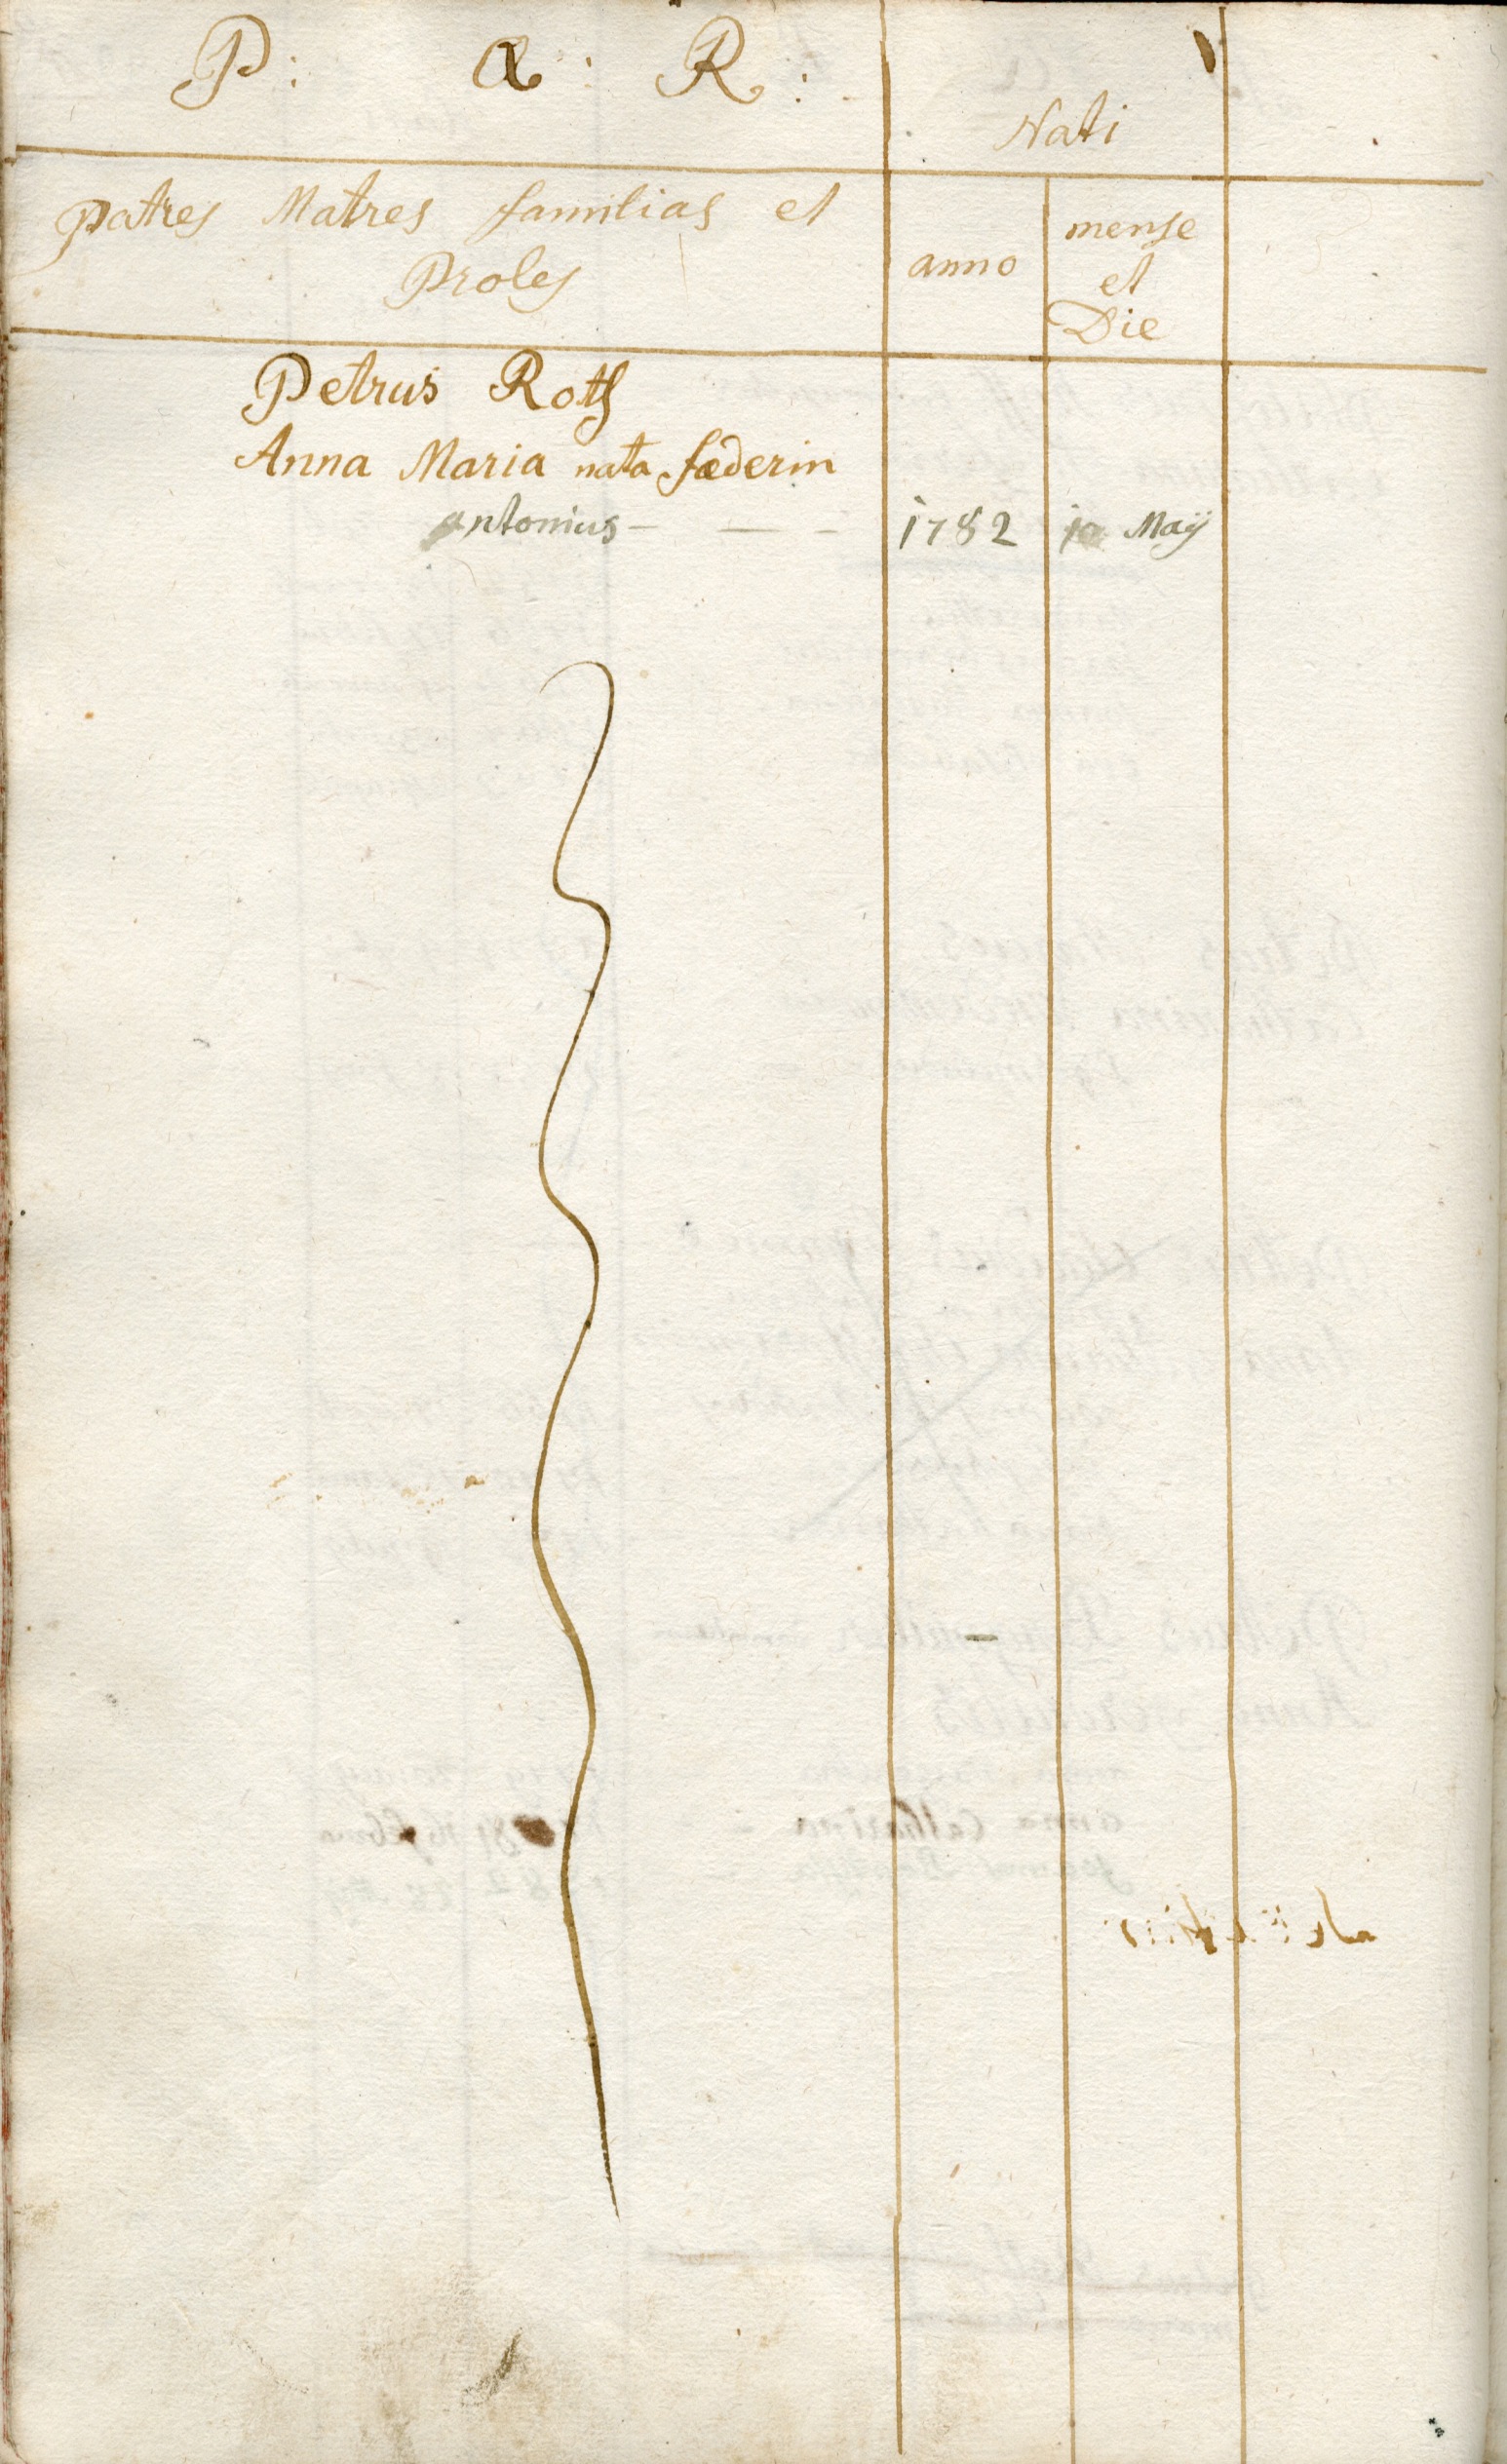 P: Q: R:
Nati
Patres Matres familias et
Proles
anno
mense
et
Die
Petrus Roth
Anna Maria nata fæderin
antonius — — — 1782 10 Maÿ